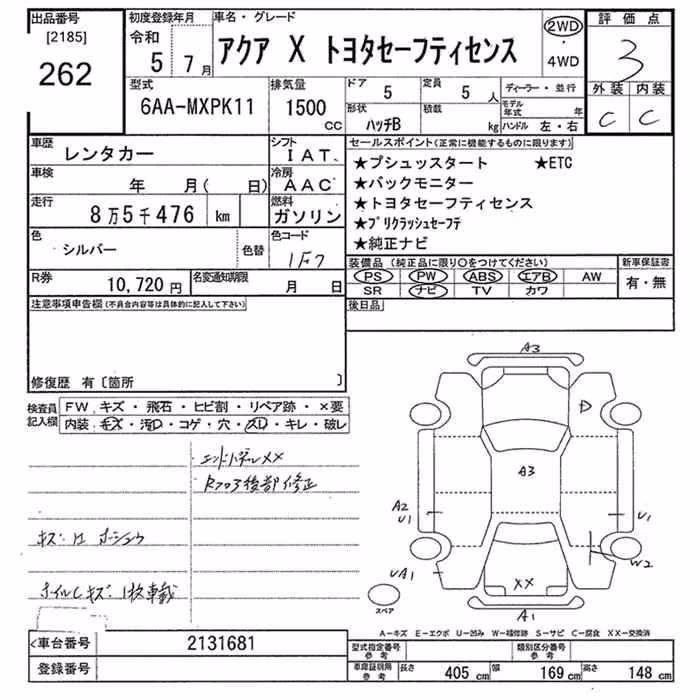 出品番号 初度登録年月 車名・グレード 評価点
[2185] 令和 5 7月 アクア X トヨタセーフティセンス 2WD ・ 4WD 3
262
型式 排気量 ドア 5 定員 5人 ディーラー・並行 外装 内装
6AA-MXPK11 1500 CC 形状 ハッチB 積載 kg モデル年式 年 ハンドル 左・右 C C
車歴 レンタカー シフト IAT セールスポイント(正常に機能するものに限ります)
車検 年 月( 日) 冷房 AAC ★プシュッスタート ★ETC
★バックモニター
走行 8万5千476 km 燃料 ガソリン ★トヨタセーフティセンス
★プリクラッシュセーフテ
色 シルバー 色替 色コード 1F7 ★純正ナビ
R券 10,720円 名変通知期限 月 日 装備品(純正品に限り〇をつけてください) 新車保証書
PS PW ABS エアB AW 有・無
SR ナビ TV カワ
注意事項申告欄(不具合内容等は具体的に記入して下さい) 後日品
修復歴 有〔箇所 〕
検査員 FW.キズ・飛石・ヒビ割・リペア跡・×要
記入欄 内装.キズ・汚D・コゲ・穴・スレ・キレ・破レ
エンドパネルXX
Rフロア後部修正
キズ
ホイルCキズ 1枚車載
A3
A3
A2
U1
U1
W2
UA1
XX
A1
スペア
A-キズ E-エクボ U-凹み W-補修跡 S-サビ C-腐食 XX-交換済
車台番号 2131681 型式指定番号 参考 類別区分番号 参考
登録番号 車庫証明用 参考 長さ 405cm 幅 169cm 高さ 148cm